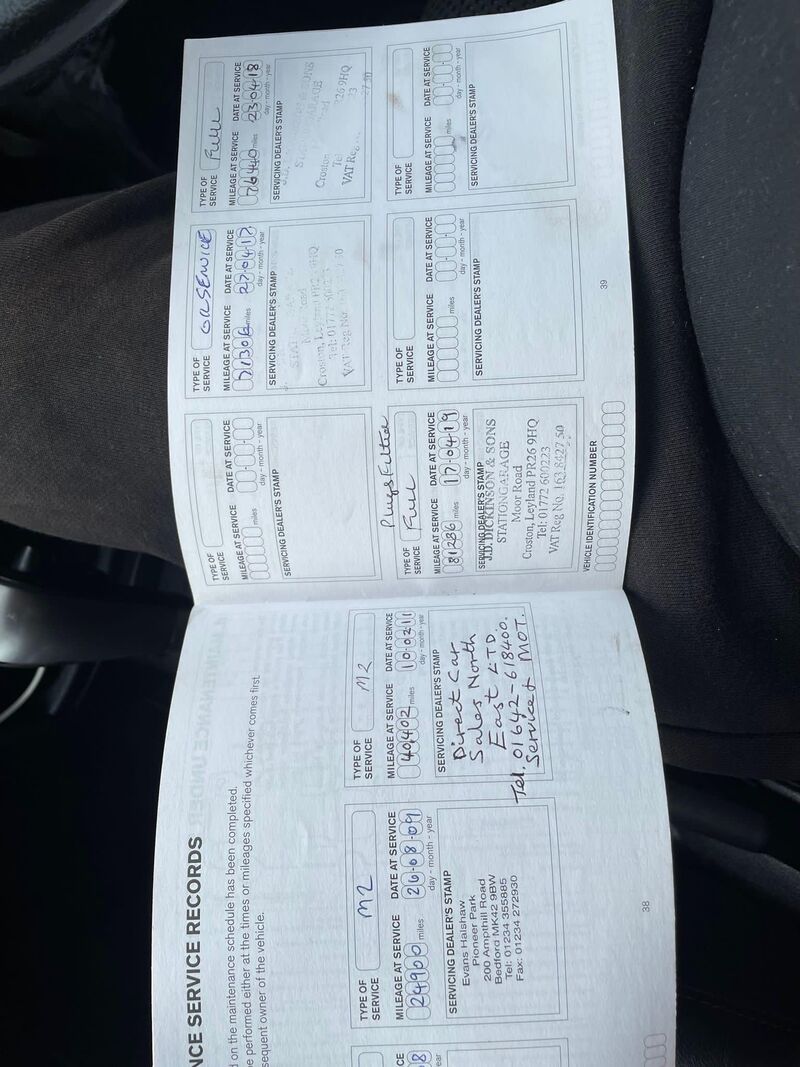 NCE SERVICE RECORDS
d on the maintenance schedule has been completed.
e performed either at the times or mileages specified whichever comes first.
sequent owner of the vehicle.
CE
8
ear
TYPE OF
SERVICE
M2
MILEAGE AT SERVICE
DATE AT SERVICE
24900 miles
26·08·09
day - month - year
SERVICING DEALER'S STAMP
Evans Halshaw
Pioneer Park
200 Ampthill Road
Bedford MK42 9BW
Tel: 01234 355885
Fax: 01234 272930
TYPE OF
SERVICE
M2
MILEAGE AT SERVICE
DATE AT SERVICE
40402 miles
10·02·11
day - month - year
SERVICING DEALER'S STAMP
Direct Car
Sales North
East LTD.
Tel. 01642-618400.
Service & MOT.
38
TYPE OF
SERVICE
MILEAGE AT SERVICE
DATE AT SERVICE
miles
day - month - year
SERVICING DEALER'S STAMP
TYPE OF
SERVICE
MILEAGE AT SERVICE
DATE AT SERVICE
miles
27·04·17
day - month - year
SERVICING DEALER'S STAMP
Road
Croston, Leyland PR26 9HQ
Tel: 01772
VAT Reg No.
TYPE OF
SERVICE
Full
MILEAGE AT SERVICE
DATE AT SERVICE
76440 miles
23·04·18
day - month - year
SERVICING DEALER'S STAMP
SONS
Croston
VAT Reg
Plugs Fitted
TYPE OF
SERVICE
Full
MILEAGE AT SERVICE
DATE AT SERVICE
81286 miles
17·04·19
day - month - year
SERVICING DEALER'S STAMP
J.D. DICKINSON & SONS
STATION GARAGE
Moor Road
Croston, Leyland PR26 9HQ
Tel: 01772 600223
VAT Reg No. 163 8427 50
TYPE OF
SERVICE
MILEAGE AT SERVICE
DATE AT SERVICE
miles
day - month - year
SERVICING DEALER'S STAMP
TYPE OF
SERVICE
MILEAGE AT SERVICE
DATE AT SERVICE
miles
day - month - year
SERVICING DEALER'S STAMP
VEHICLE IDENTIFICATION NUMBER
39